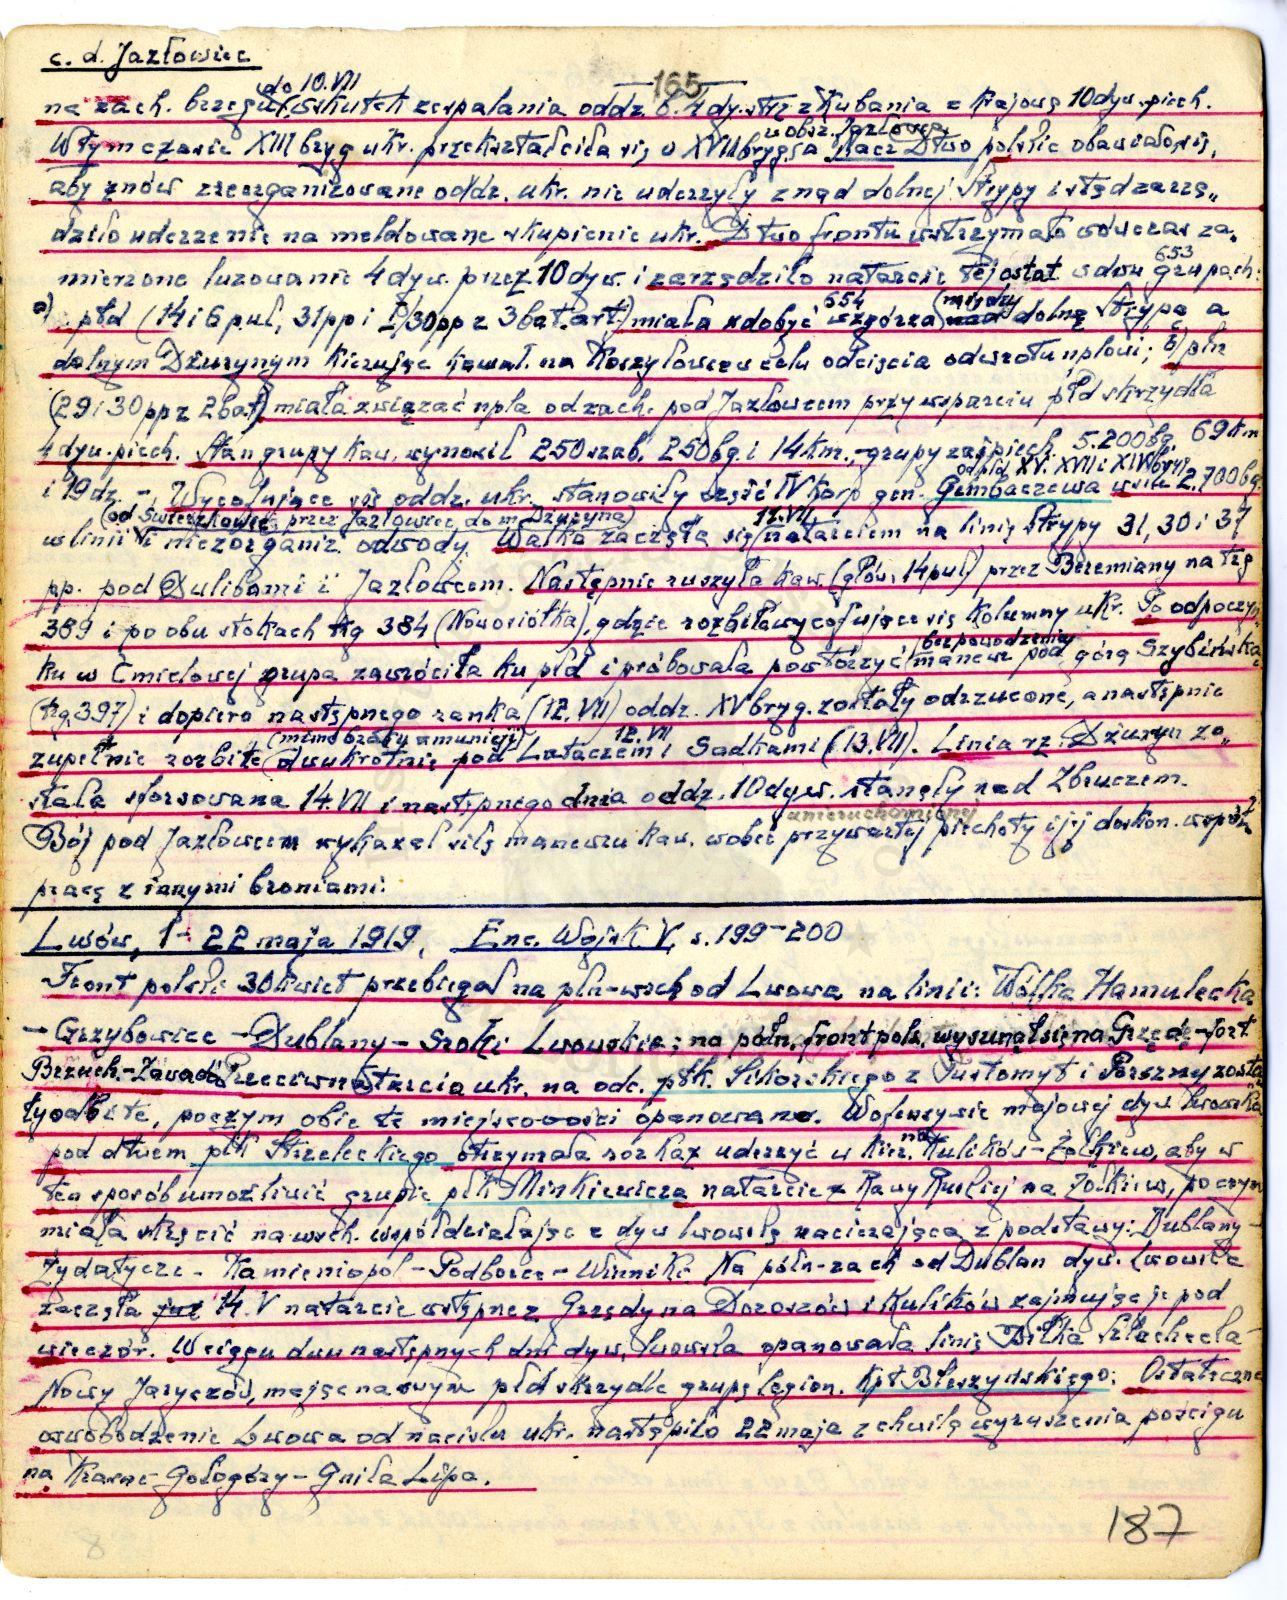 c. d. Jazłowiec
—165—
do 10.VII
na zach. brzegu, wskutek zespalania oddz. b. 4 dy. strz. z Kubania z krajową 10 dyw. piech.
W tym czasie XIII bryg ukr. przekształciła się w XVII brygsa w obsz. Jazłowca Nacz Dtwo polskie obawiało się,
aby znów zreorganizowane oddz. ukr. nie uderzyły znad dolnej Strypy i stąd zarzą„
dziło uderzenie na meldowane skupienie ukr. Dtwo frontu wstrzymało wówczas za„
mierzone luzowanie 4 dyw. przez 10 dyw. i zarządziło natarcie tej ostat. w dwu grupach:
653
a) płd (14 i 6 puł, 31 pp i /30 pp z 3 bat. art.) miała zdobyć wzgórza 654 (między dolną Strypą a
dolnym Dżurynym kierując kawal. na Koszyłowce w celu odcięcia odwrotu nplowi; b) płn
(29 i 30 pp z 2 bat) miała związać npla od zach. pod Jazłowcem przy wsparciu płd skrzydła
4 dyw. piech. Stan grupy kaw. wynosił 250 szab. 250 bg. i 14 km., grupy zaś piech. 5.200 bg. 69 km
i 19 dz. –, Wycofujące się oddz. ukr. stanowiły część IV Korp gen. Gembaczewa od płd XV. XVII i XIV bryg w sile 2.700 bg.
(od Świerzkowiec przez Jazłowiec do m. Dżuryna)
w linii i niezorganiz. odwody. Walka zaczęła się 11.VII natarciem na linię Strypy 31, 30 i 37
pp. pod Dulibami i Jazłowcem. Następnie ruszyła kaw. (głów. 14 puł) przez Beremiany na trg
389 i po obu stokach trg 384 (Nowosiółka), gdzie rozbiła wycofujące się kolumny ukr. Po odpoczyn„
ku w Cmielowej grupa zawróciła ku płd i próbowała powtórzyć bez powodzenia manewr pod górą Szybiwska
(trg 397) i dopiero następnego ranka (12. VII) oddz. XV bryg. zostały odrzucone, a następnie
zupełnie rozbite (mimo braku amunicji) dwukrotnie pod Lataczem 12. VII i Sadkami (13. VII). Linia rz. Dżuryn zo„
stała sforsowana 14. VII i następnego dnia oddz. 10 dyw. stanęły nad Zbruczem.
unieruchomionej
Bój pod Jazłowcem wykazał siłę manewru kaw. wobec przywartej piechoty i jej doskon. współ„
pracę z innymi broniami.
Lwów, 1 – 22 maja 1919, Enc. Wojsk V, s. 199–200
Front polski 30 kwiet przebiegał na płn-wsch od Lwowa na linii: Wólka Hamulecka
– Grzybowice – Dublany – Sroki Lwowskie; na półn. front pols. wysunął się na Grzędę – fort
Brzuch.–Zawad. Przeciwnatarcia ukr. na odc. płk. Sikorskiego z Pustomyt i Porszny zosta
ły odbite, poczym obie te miejscowości opanowano. W ofenzywie majowej dyw. lwowska
pod dtwem płk Strzeleckiego otrzymała rozkaz uderzyć w kier. na Kulików – Żółkiew, aby w
ten sposób umożliwić grupie płk Minkiewicza natarcie z Rawy Ruskiej na Żółkiew, poczym
miała skręcić na wsch. współdziałając z dyw lwowską nacierającą z podstawy: Dublany –
Żydatycze – Kamieniopol – Podborce – Winniki. Na półn-zach od Dublan dyw. lwowska
zaczęła już 14. V natarcie wstępne z Grzędy na Doroszów i Kulików zajmując je pod
wieczór. W ciągu dwu następnych dni dyw. lwowska opanowała linię Biłka Szlachecka –
Nowy Jaryczów, mając na swym płd skrzydle grupę legion. kpt Bleszyńskiego; Ostateczne
oswobodzenie Lwowa od nacisku ukr. nastąpiło 22 maja z chwilą wyruszenia pościgu
na Krasne – Gołogóry – Gniła Lipa.
187